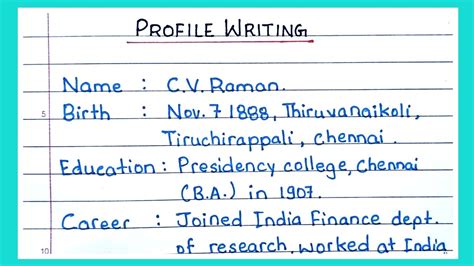 PROFILE WRITING
Name : C.V. Raman.
5 Birth : Nov. 7 1888, Thiruvanaikoli,
Tiruchirappali, Chennai.
Education : Presidency college, Chennai
(B.A.) in 1907.
Career : Joined India Finance dept.
10 of research, worked at India